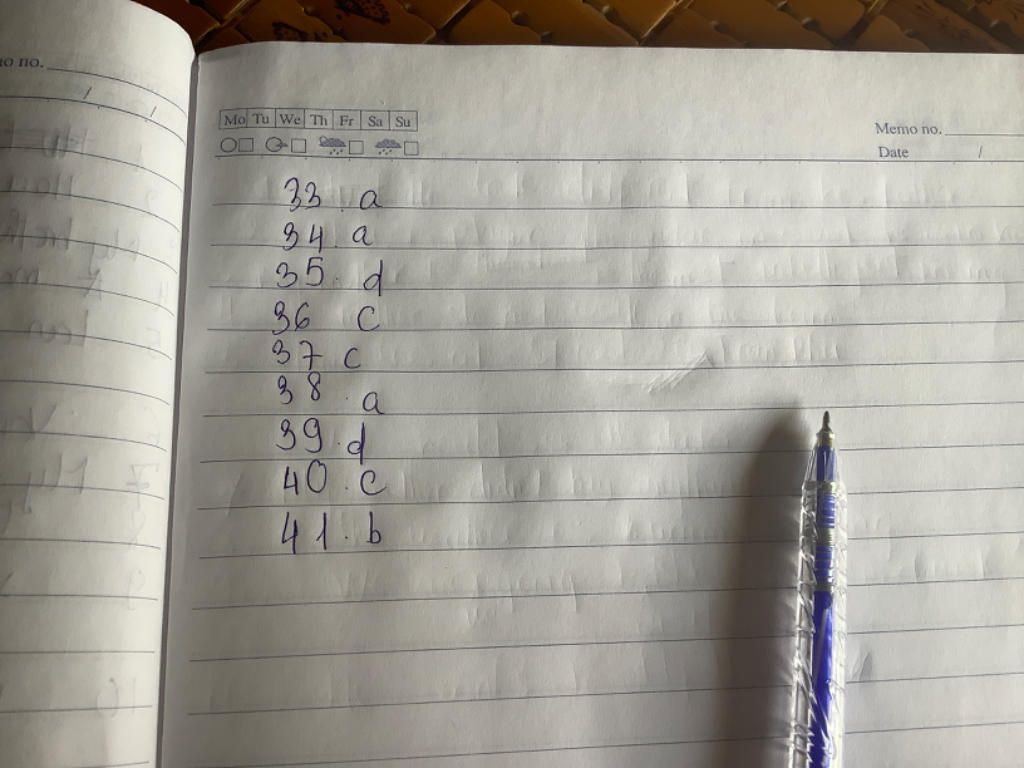 no.
Mo Tu We Th Fr Sa Su
Memo no.
Date /
33. a
34. a
35. d
36 c
37 c
38. a
39. d
40. c
41. b